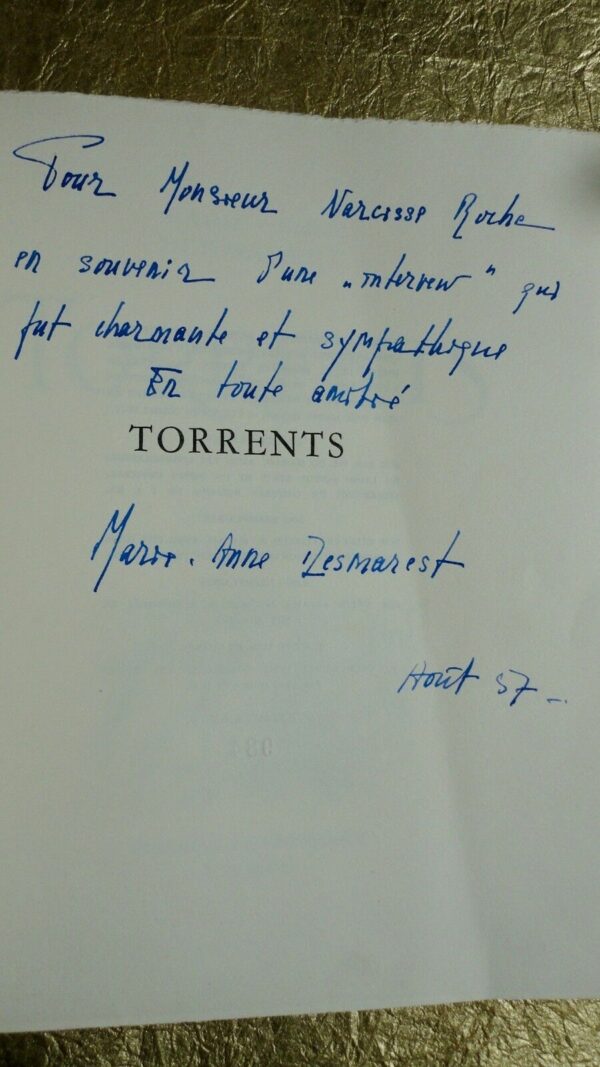 Pour Monsieur Narcisse Roche
en souvenir d'une „interview" qui
fut charmante et sympathique
En toute amitié
TORRENTS
Marie-Anne Desmarest
Août 57